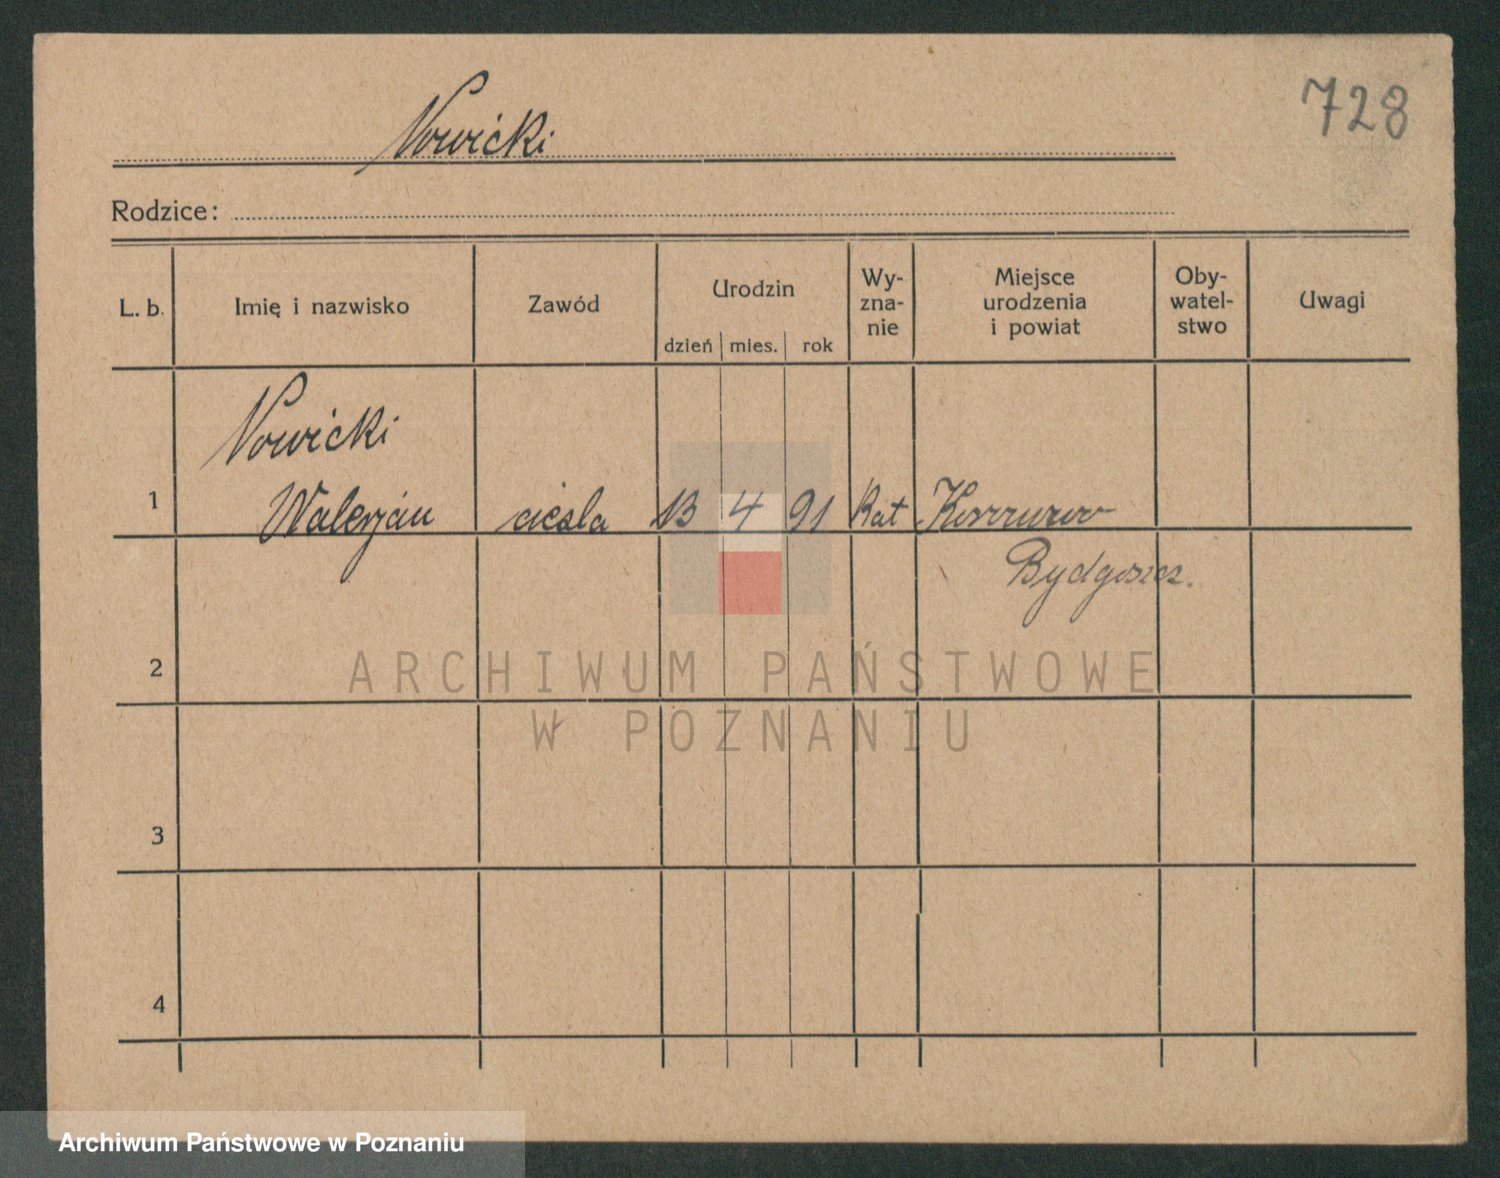 728
Nowicki
Rodzice:
L. b.
Imię i nazwisko
Zawód
Urodzin
dzień mies. rok
Wy-
zna-
nie
Miejsce
urodzenia
i powiat
Oby-
watel-
stwo
Uwagi
Nowicki
1 Walerjan cieśla 13 4 91 Kat
Bydgoszcz.
2
ARCHIWUM PAŃSTWOWE
W POZNANIU
3
4
Archiwum Państwowe w Poznaniu